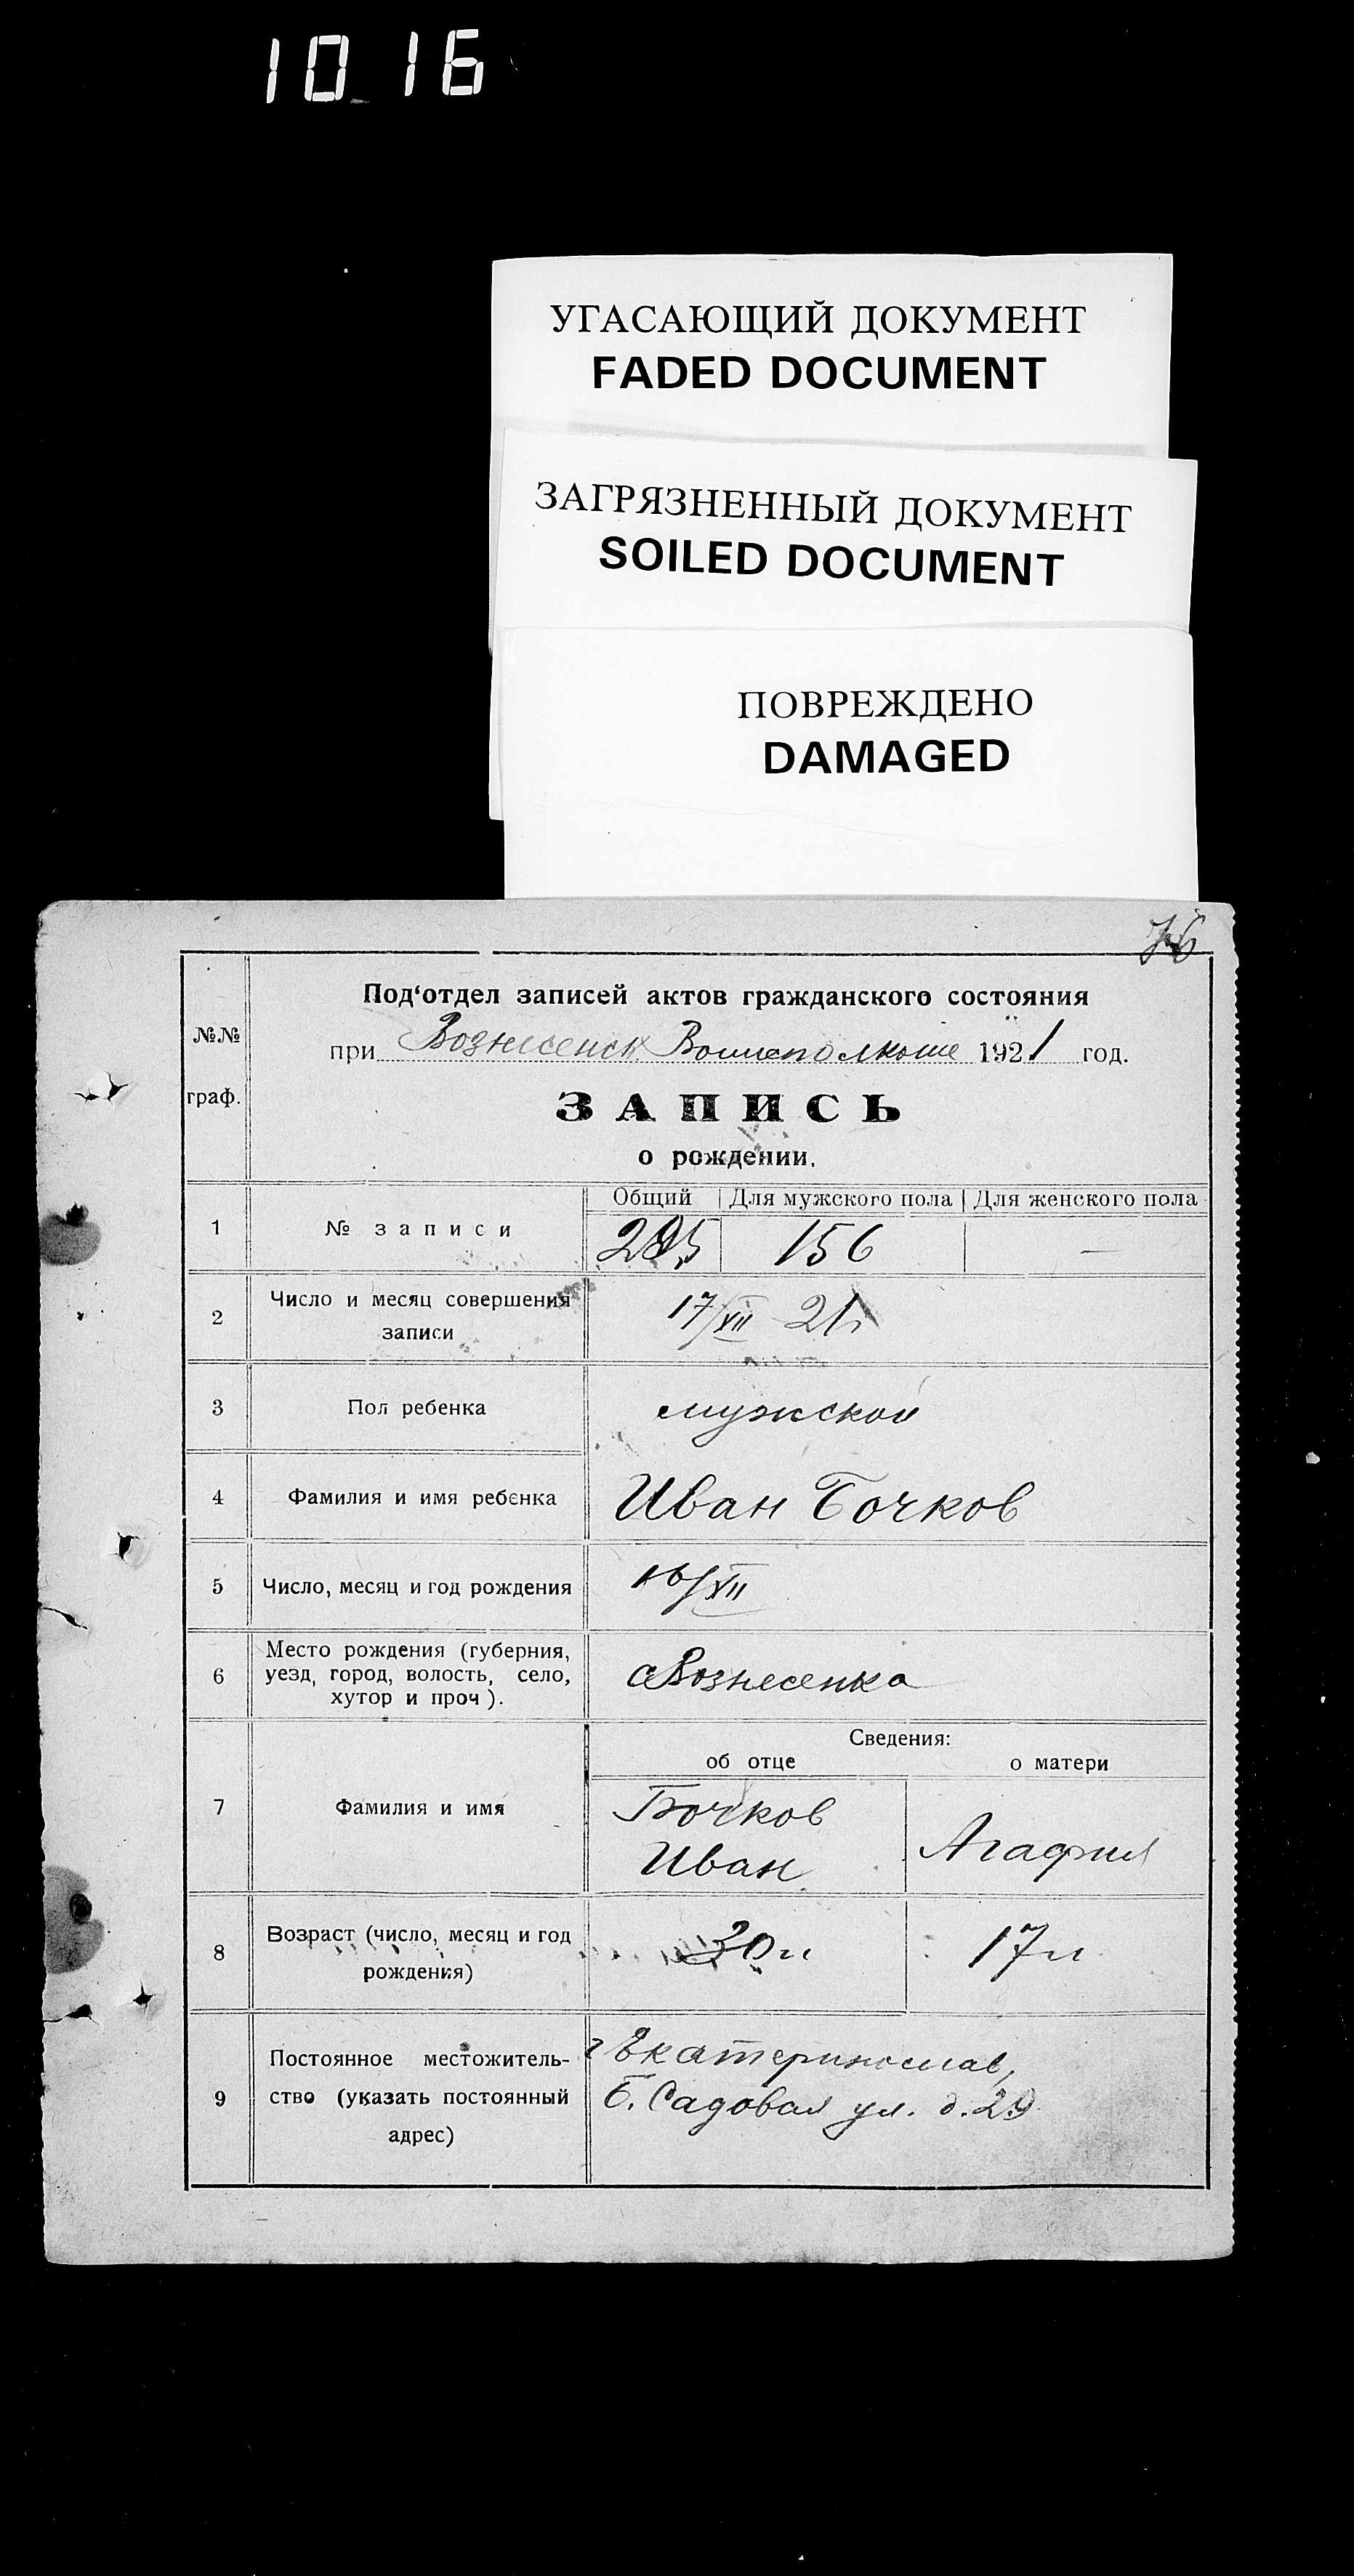 10 16
УГАСАЮЩИЙ ДОКУМЕНТ
FADED DOCUMENT
ЗАГРЯЗНЕННЫЙ ДОКУМЕНТ
SOILED DOCUMENT
ПОВРЕЖДЕНО
DAMAGED
76
№№
граф.
Под‘отдел записей актов гражданского состояния
при Вознесенск 1921 год.
ЗАПИСЬ
о рождении.
Общий Для мужского пола Для женского пола
1 № записи 156 —
2 Число и месяц совершения
записи
17/XII 21г
3 Пол ребенка мужской
4 Фамилия и имя ребенка Иван Бочков
5 Число, месяц и год рождения 16/XII
6 Место рождения (губерния,
уезд, город, волость, село,
хутор и проч).
с Вознесенка
Сведения:
об отце о матери
7 Фамилия и имя
Бочков
Иван
Агафия
8 Возраст (число, месяц и год
рождения)
30 л 17 л
9 Постоянное местожитель-
ство (указать постоянный
адрес)
г Екатеринослав,
Б. Садовая ул. д. 29